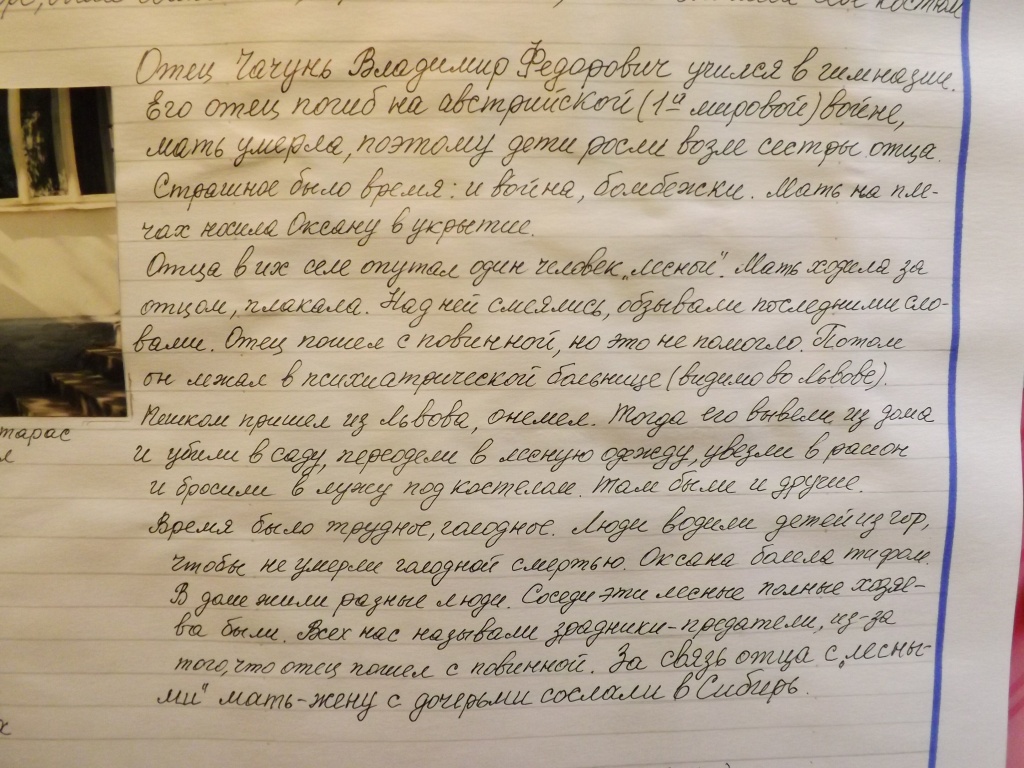 костюм
Отец Чачунь Владимир Федорович учился в гимназии.
Его отец погиб на австрийской (1ª мировой) войне,
мать умерла, поэтому дети росли возле сестры отца.
Страшное было время: и война, бомбежки. Мать на пле-
чах носила Оксану в укрытие.
Отца в их селе опутал один человек „лесный". Мать ходила за
отцом, плакала. Над ней смеялись, обзывали последними сло-
вами. Отец пошел с повинной, но это не помогло. Потом
он лежал в психиатрической больнице (видимо во Львове).
Пешком пришел из Львова, онемел. Тогда его вывели из дома
и убили в саду, переодели в лесную одежду, увезли в район
и бросили в лужу под костелом. Там были и другие.
Время было трудное, голодное. Люди водили детей из гор,
чтобы не умерли голодной смертью. Оксана болела тифом.
В доме жили разные люди. Соседи эти лесные полные хозяе-
ва были. Всех нас называли зрадники-предатели, из-за
того, что отец пошел с повинной. За связь отца с „лесны-
ми" мать-жену с дочерьми сослали в Сибирь.
тарас